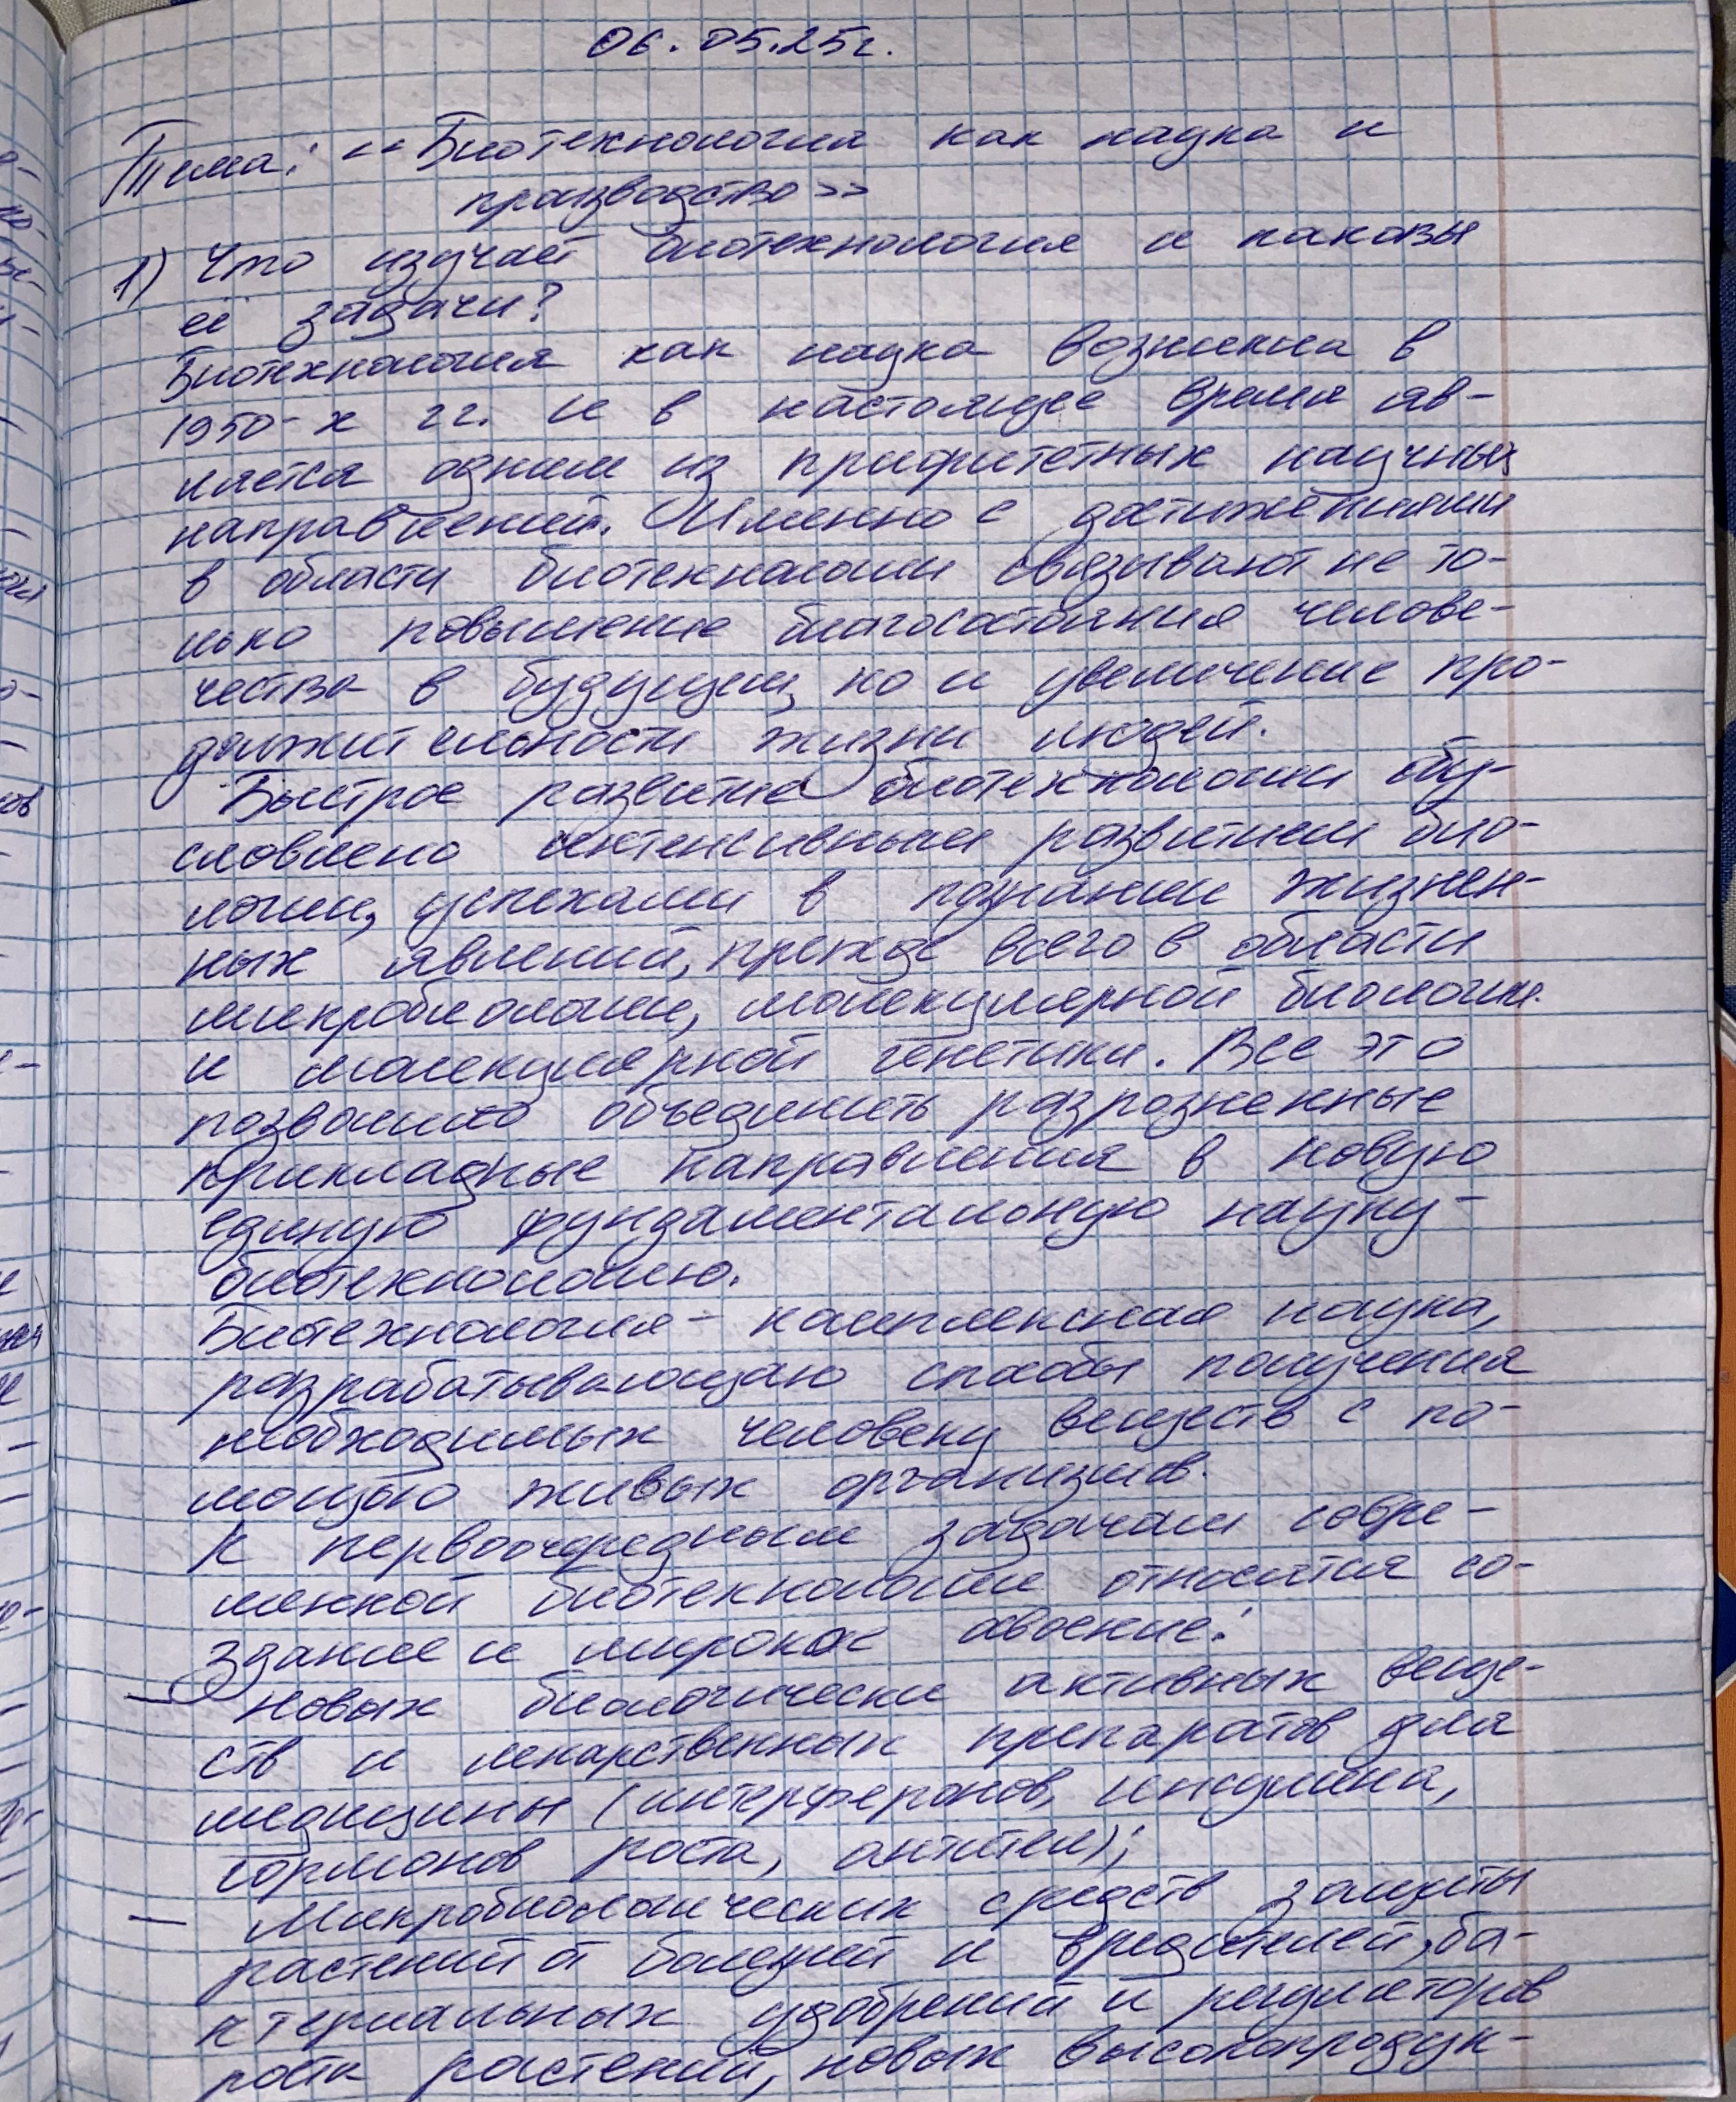 06.05.25г.
Тема: «Биотехнология как наука и
производство»
1) Что изучает биотехнология и каковы
её задачи?
Биотехнология как наука возникла в
1950-х гг. и в настоящее время яв-
ляется одним из приоритетных научных
направлений. Именно с достижениями
в области биотехнологии связывают не то-
лько повышение благосостояния челове-
чества в будущем, но и увеличение про-
должительности жизни людей.
Быстрое развитие биотехнологии обу-
словлено интенсивным развитием био-
логии, успехами в познании жизнен-
ных явлений, прежде всего в области
микробиологии, молекулярной биологии
и молекулярной генетики. Все это
позволило объединить разрозненные
прикладные направления в новую
единую фундаментальную науку -
биотехнологию.
Биотехнология - комплексная наука,
разрабатывающаю способы получения
необходимых человеку веществ с по-
мощью живых организмов.
К первоочередным задачам совре-
менной биотехнологии относятся со-
здание и широкое освоение:
— новых биологически активных веще-
ств и лекарственных препаратов для
медицины (интерферонов, инсулина,
гормонов роста, антител);
— Микробиологических средств защиты
растений от болезней и вредителей, ба-
ктериальных удобрений и регуляторов
роста растений, новых высокопродук-